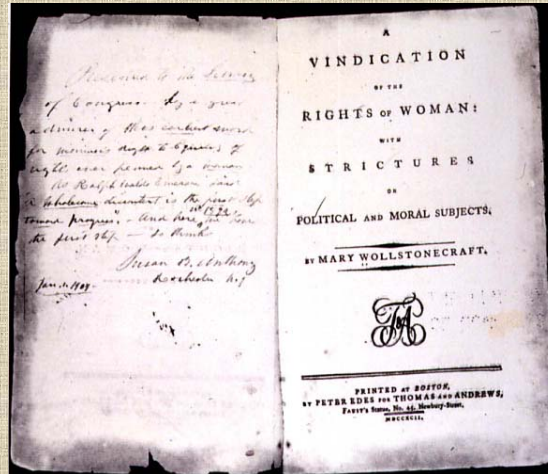 Presented to the Library
of Congress by a great
admirer of this earliest word
for woman's right to Equality of
rights ever penned by a woman
As Ralph Waldo Emerson said
A wholesome discontent is the first step
toward progress - And here in 1792 we have
the first step - so thinks
Susan B. Anthony
Rochester N.Y
Jan. 1. 1904
A
VINDICATION
OF THE
RIGHTS OF WOMAN:
WITH
STRICTURES
ON
POLITICAL AND MORAL SUBJECTS.
BY MARY WOLLSTONECRAFT.
T&A
PRINTED AT BOSTON,
BY PETER EDES FOR THOMAS AND ANDREWS,
FAUST's Statue, No. 45, Newbury-Street,
MDCCXCII.